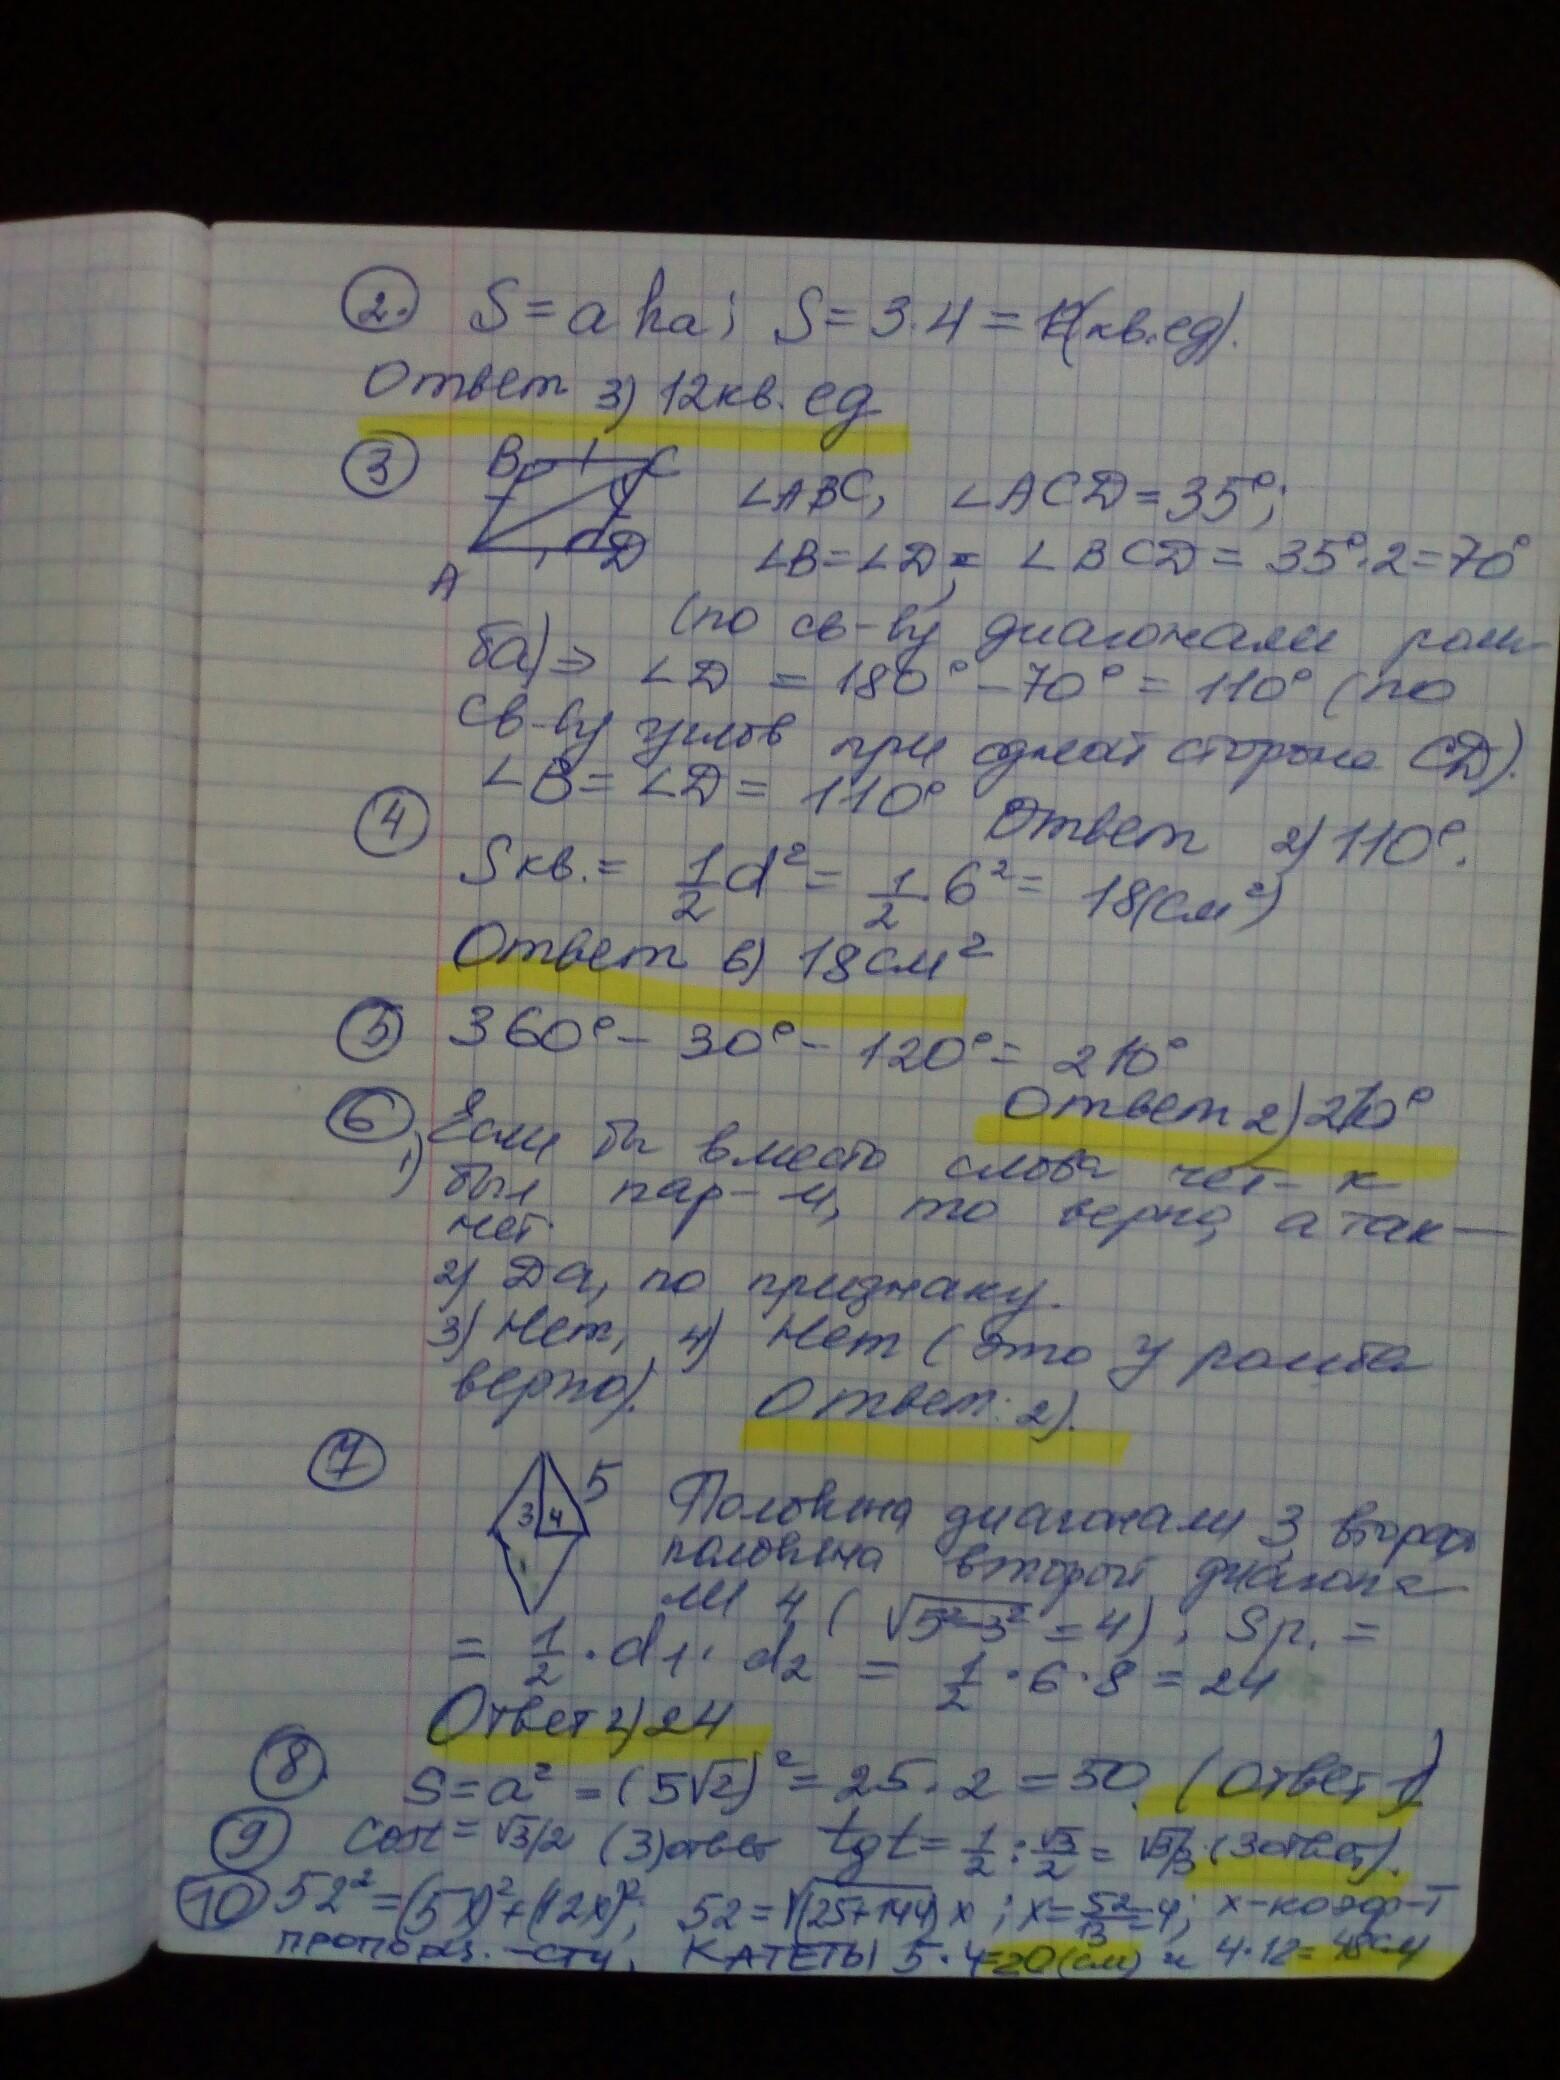 2. S = a ha; S = 3·4 = 12(кв.ед).
Ответ 3) 12кв. ед
3 B C ∠ABC, ∠ACD = 35°;
A D ∠B = ∠D, ∠BCD = 35°·2 = 70°
(по св-ву диагонали ром-
ба) ⇒ ∠D = 180° - 70° = 110° (по
св-ву углов при одной стороне CD).
∠B = ∠D = 110° Ответ 2) 110°.
4 Sкв. = 1/2 d² = 1/2 · 6² = 18(см²)
Ответ в) 18см²
5 360° - 30° - 120° = 210°
Ответ 2) 210°
6 1) Если бы вместо слова чет-к
был пар-м, то верно, а так —
нет.
2) Да, по признаку.
3) Нет, 4) Нет (это у ромба
верно). Ответ: 2).
7 3 4 5 Половина диагонали 3, вторая
половина второй диагона
ли 4 (√5²-3² = 4); Sр. =
= 1/2 · d1 · d2 = 1/2 · 6 · 8 = 24
Ответ 2) 24
8 S = a² = (5√2)² = 25·2 = 50. (Ответ 1)
9 cost = √3/2 (3) ответ tgt = 1/2 : √3/2 = √3/3 (3 ответ).
10 52² = (5x)² + (12x)²; 52 = √(25+144) x; x = 52/13 = 4; x-коэф-т
пропорц.-сти, КАТЕТЫ 5·4=20(см) и 4·12=48см